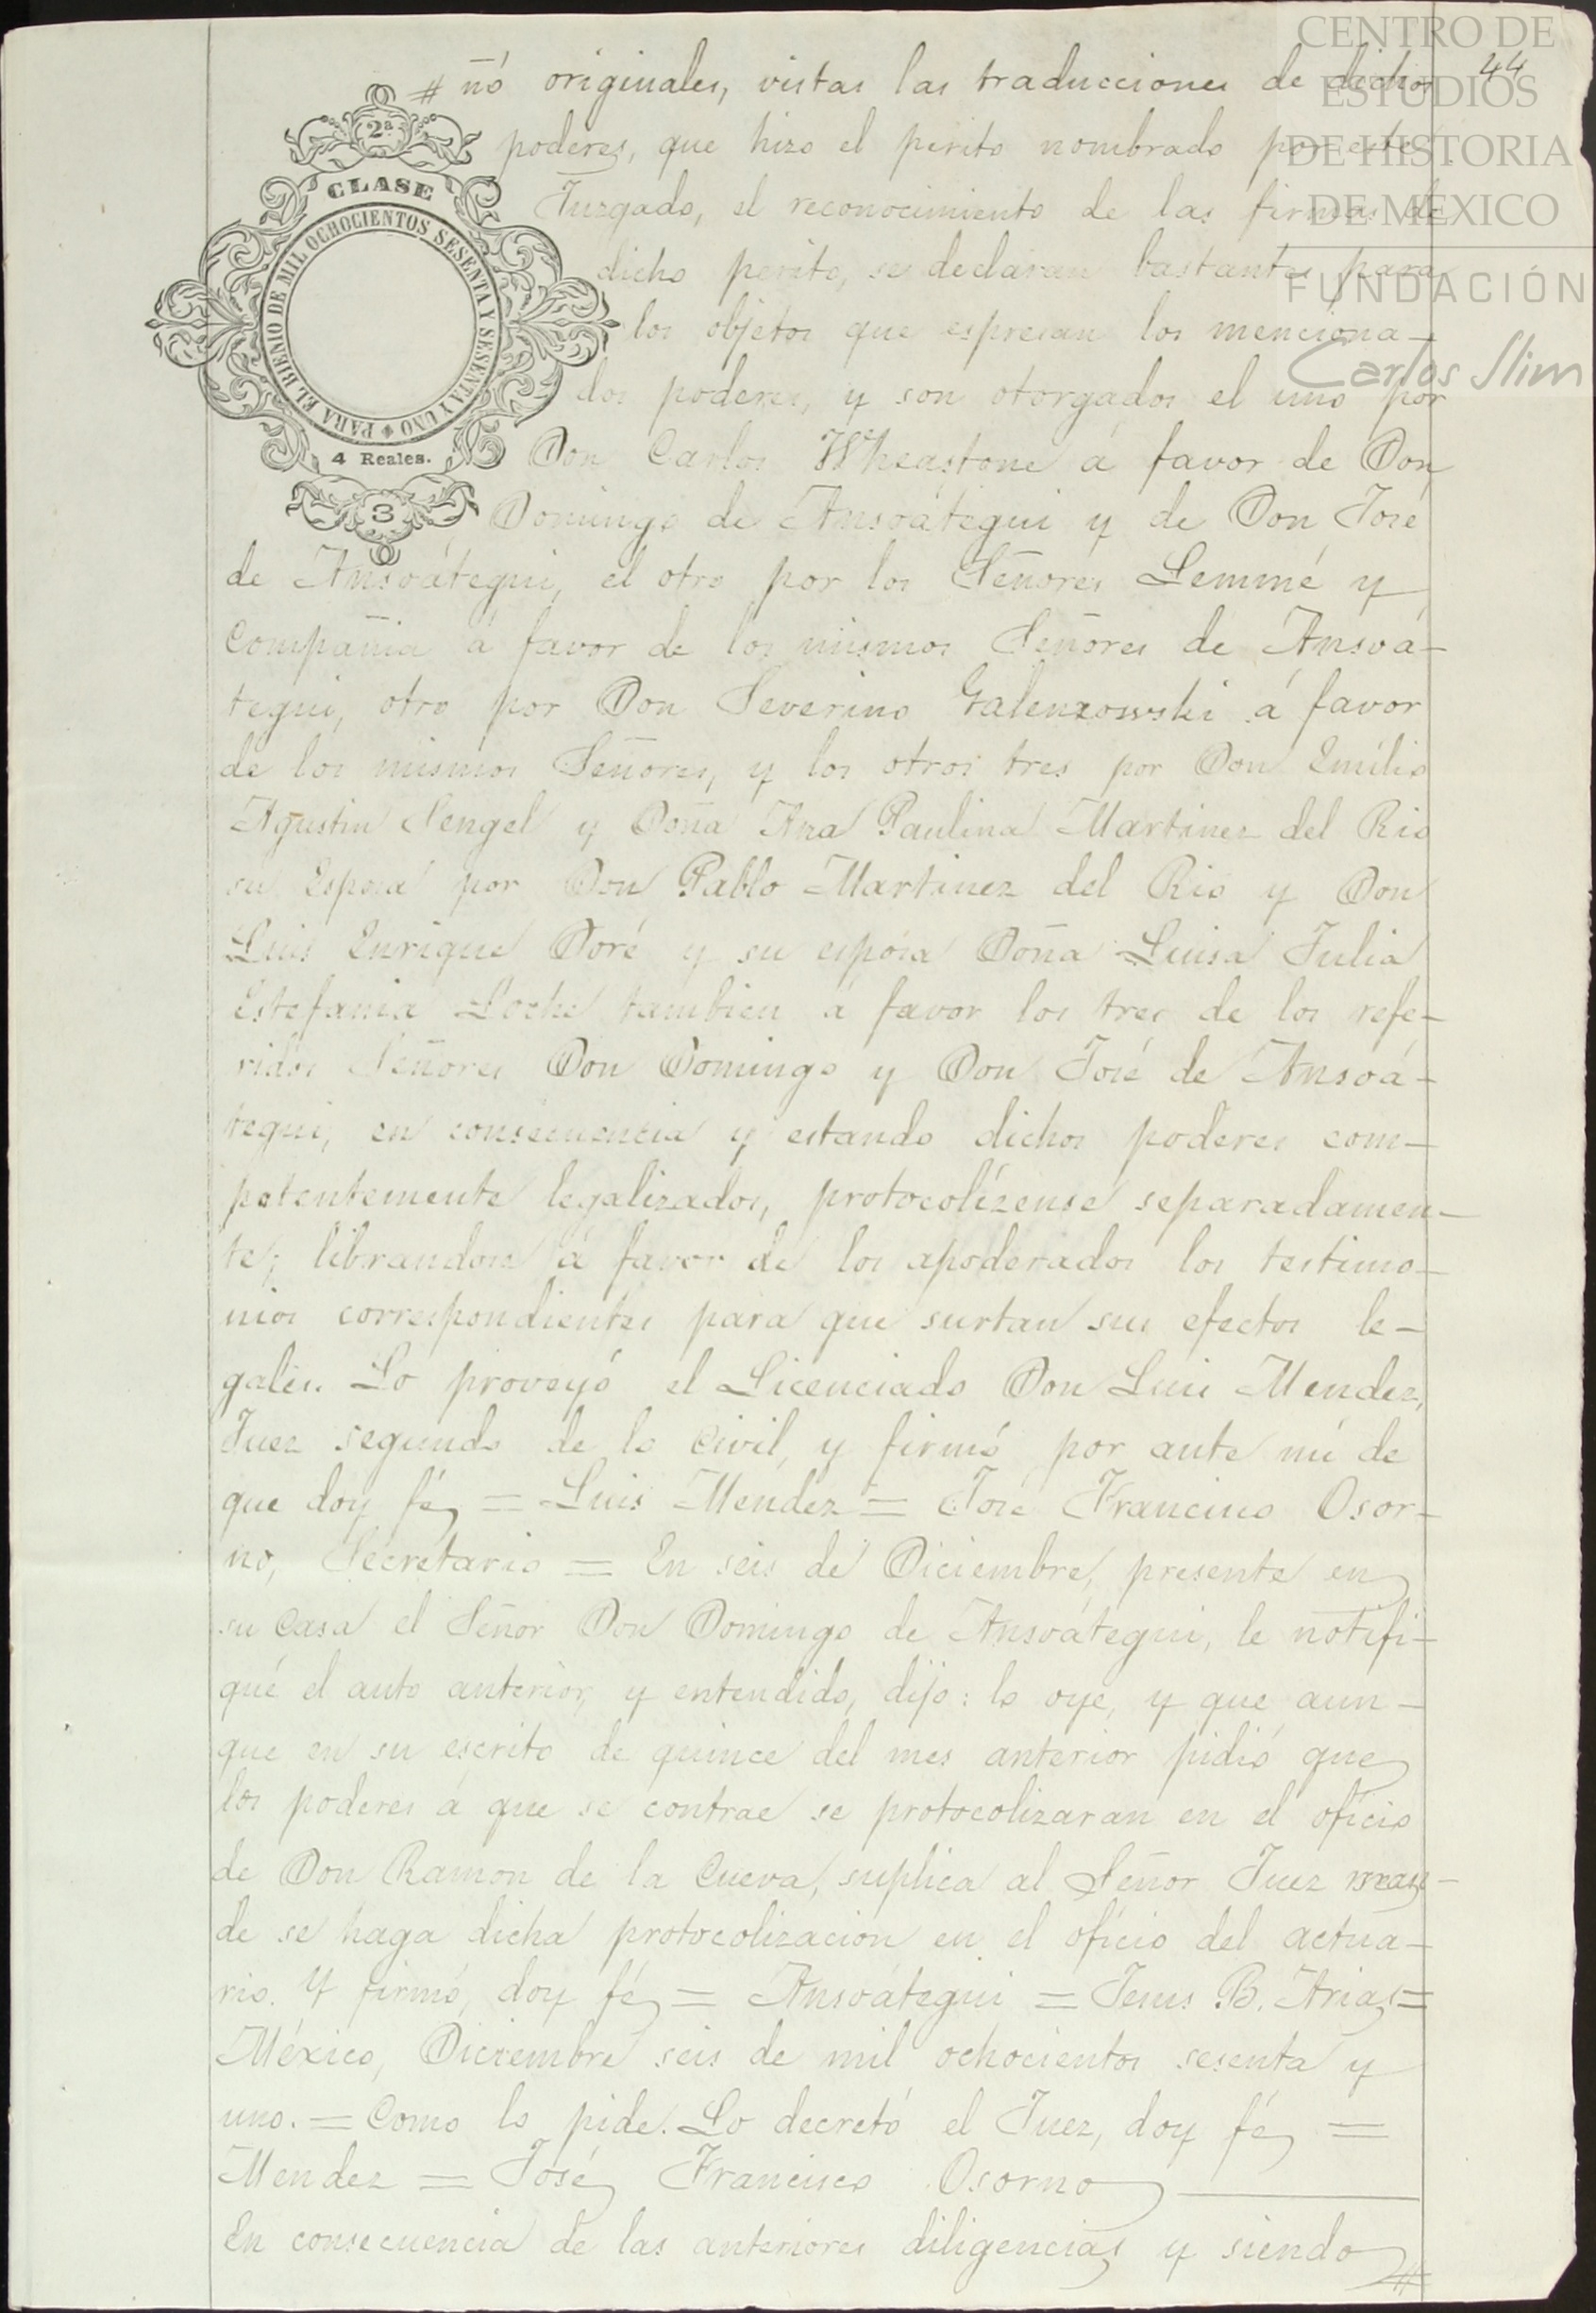 CENTRO DE
ESTUDIOS
DE HISTORIA
DE MEXICO
FUNDACIÓN
Carlos Slim
44
2ª
CLASE
PARA EL BIENIO DE MIL OCHOCIENTOS SESENTA Y SESENTA Y UNO
4 Reales.
3
# ñó originales, vistas las traducciones de dichos
poderes, que hizo el perito nombrado por este
Juzgado, el reconocimiento de las firmas de
dicho perito, se declaran bastantes para
los objetos que espresan los menciona-
dos poderes, y son otorgados el uno por
Don Carlos Wheastone á favor de Don
Domingo de Ansoátegui y de Don José
de Ansoátegui, el otro por los Señores Lemmé y
Compañia á favor de los mismos Señores de Ansoá-
tegui, otro por Don Severino Galenzowski á favor
de los mismos Señores, y los otros tres por Don Emilio
Agustin Sengel y Doña Ana Paulina Martinez del Rio
su Esposa por Don Pablo Martinez del Rio y Don
Luis Enrique Doré y su esposa Doña Luisa Julia
Estefania Loche tambien á favor los tres de los refe-
ridos Señores Don Domingo y Don José de Ansoá-
tegui, en consecuencia y estando dichos poderes com-
petentemente legalizados, protocolízense separadamen-
te; librandose á favor de los apoderados los testimo-
nios correspondientes para que surtan sus efectos le-
gales. Lo proveyó el Licenciado Don Luis Mendez,
Juez segundo de lo Civil, y firmó por ante mí de
que doy fé = Luis Mendez = José Francisco Osor-
no, Secretario = En seis de Diciembre, presente en
su Casa el Señor Don Domingo de Ansoátegui, le notifi-
qué el auto anterior, y entendido, dijo: lo oye, y que aun-
que en su escrito de quince del mes anterior pidió que
los poderes á que se contrae se protocolizaran en el oficio
de Don Ramon de la Cueva, suplica al Señor Juez man-
de se haga dicha protocolizacion en el oficio del actua-
rio. Y firmó, doy fé = Ansoátegui = Jesus B. Arias =
México, Diciembre seis de mil ochocientos sesenta y
uno. = Como lo pide. Lo decretó el Juez, doy fé =
Mendez = José Francisco Osorno
En consecuencia de las anteriores diligencias y siendo #